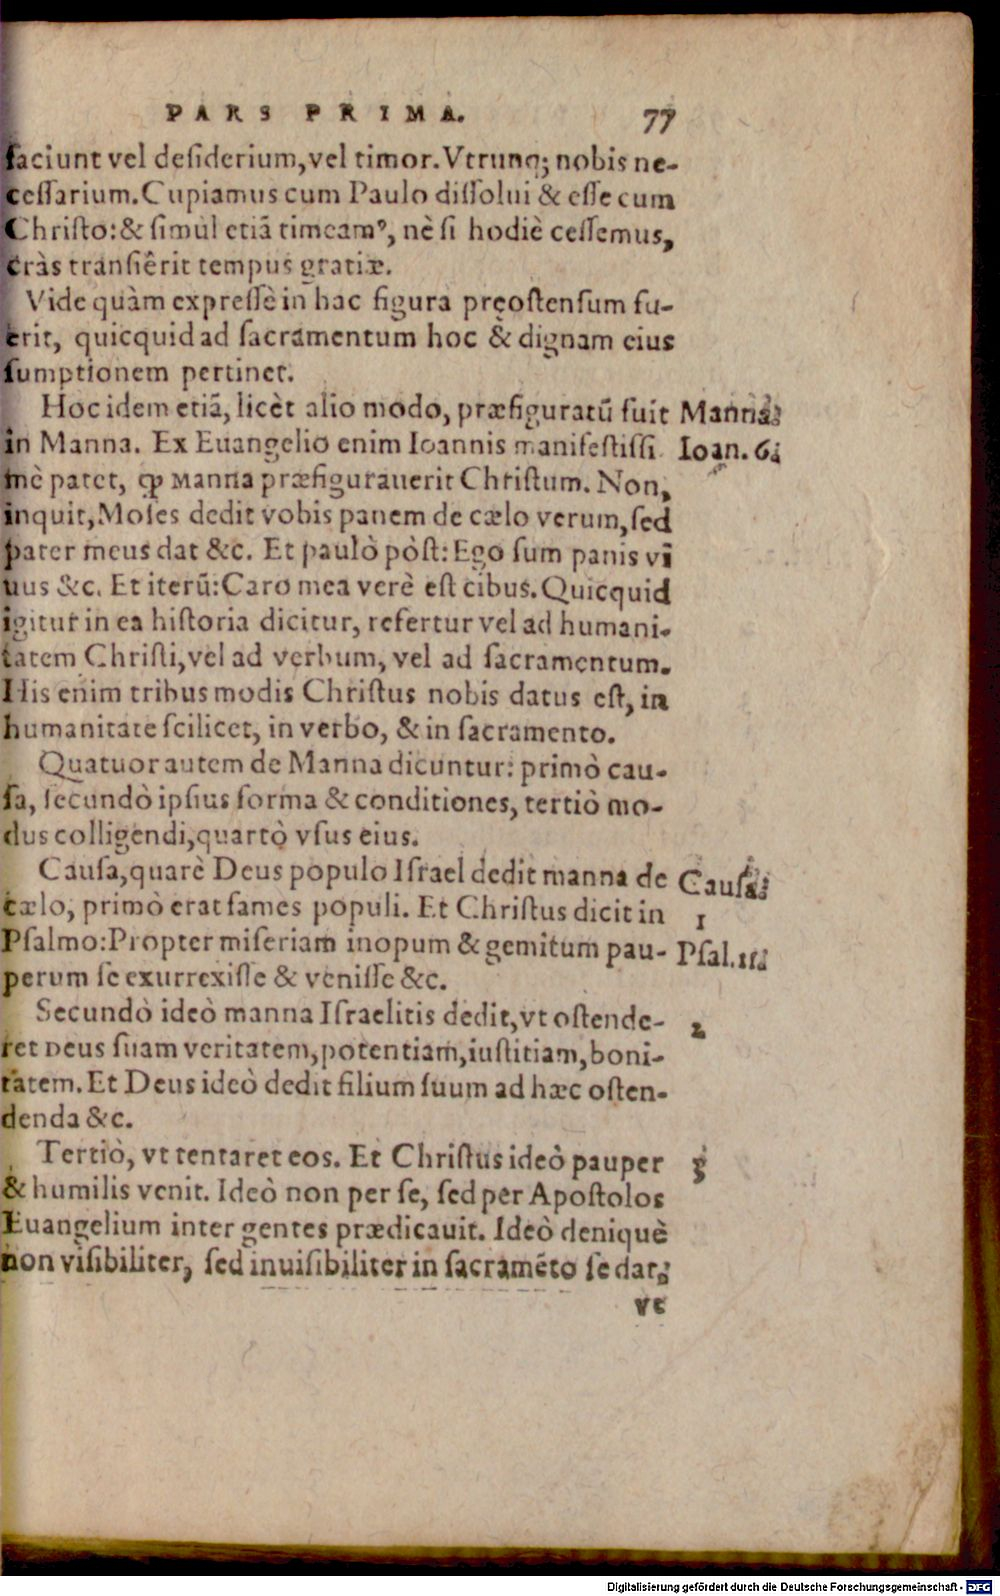 PARS PRIMA. 77
faciunt vel desiderium, vel timor. Vtrunq; nobis ne-
cessarium. Cupiamus cum Paulo dissolui & esse cum
Christo: & simul etiā timeamꝰ, nè si hodiè cessemus,
cràs transiêrit tempus gratiæ.
Vide quàm expressè in hac figura pręostensum fu-
erit, quicquid ad sacramentum hoc & dignam eius
sumptionem pertinet.
Hoc idem etiā, licèt alio modo, præfiguratū fuit Manna
in Manna. Ex Euangelio enim Ioannis manifestissi Ioan. 6.
mè patet, ꝙ Manna præfigurauerit Christum. Non,
inquit, Moses dedit vobis panem de cælo verum, sed
pater meus dat &c. Et paulò pòst: Ego sum panis vi
uus &c. Et iterū: Caro mea verè est cibus. Quicquid
igitur in ea historia dicitur, refertur vel ad humani-
tatem Christi, vel ad verbum, vel ad sacramentum.
His enim tribus modis Christus nobis datus est, in
humanitate scilicet, in verbo, & in sacramento.
Quatuor autem de Manna dicuntur: primò cau-
sa, secundò ipsius forma & conditiones, tertiò mo-
dus colligendi, quartò vsus eius.
Causa, quarè Deus populo Israel dedit manna de Causa
cælo, primò erat fames populi. Et Christus dicit in 1
Psalmo: Propter miseriam inopum & gemitum pau- Psal. 11.
perum se exurrexisse & venisse &c.
Secundò ideò manna Israelitis dedit, vt ostende- 2
ret Deus suam veritatem, potentiam, iustitiam, boni-
tatem. Et Deus ideò dedit filium suum ad hæc osten-
denda &c.
Tertiò, vt tentaret eos. Et Christus ideò pauper 3
& humilis venit. Ideò non per se, sed per Apostolos
Euangelium inter gentes prædicauit. Ideò deniquè
non visibiliter, sed inuisibiliter in sacramēto se dat,
vt
Digitalisierung gefördert durch die Deutsche Forschungsgemeinschaft - DFG